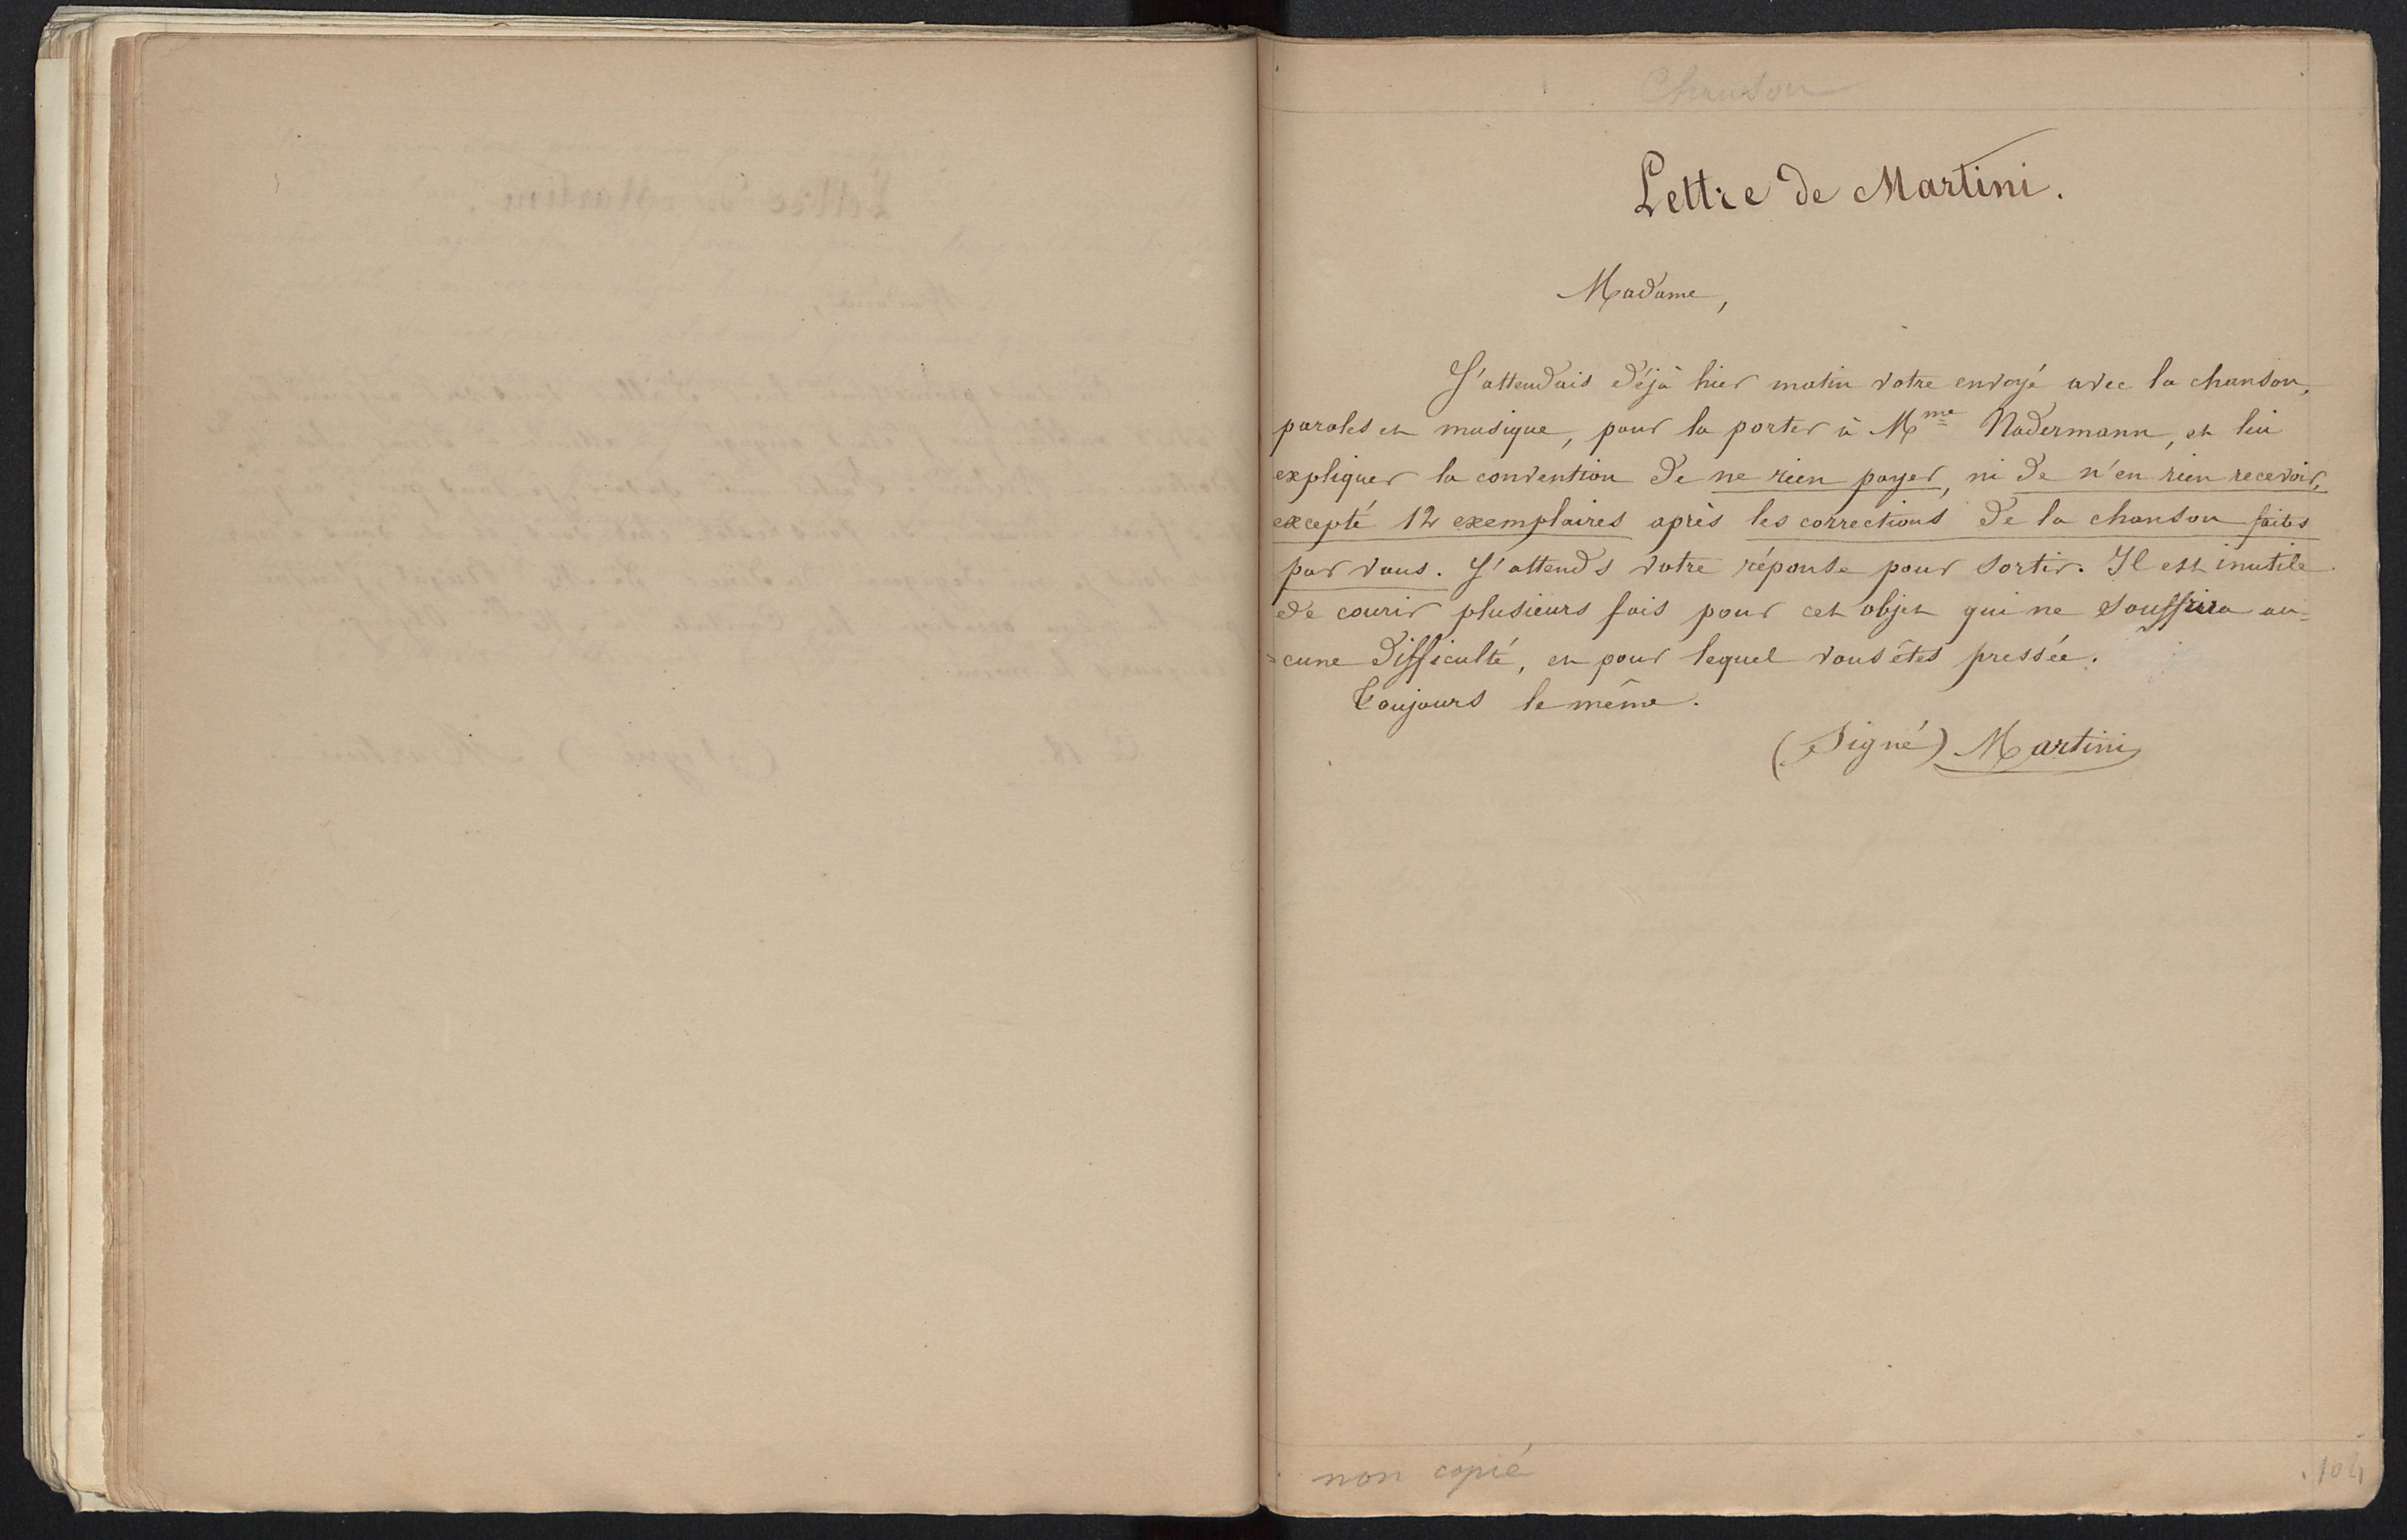 Chanson
Lettre de Martini.
Madame,
J'attendais déjà hier matin votre envoyé avec la chanson,
paroles et musique, pour la porter à Mme Nadermann, et lui
expliquer la convention de ne rien payer, ni de n'en rien recevoir,
excepté 12 exemplaires après les corrections de la chanson faites
par vous. J'attends votre réponse pour sortir. Il est inutile
de courir plusieurs fois pour cet objet qui ne souffrira au-
-cune difficulté, et pour lequel vous êtes pressée.
Toujours le même.
(Signé) Martini
non copié
104